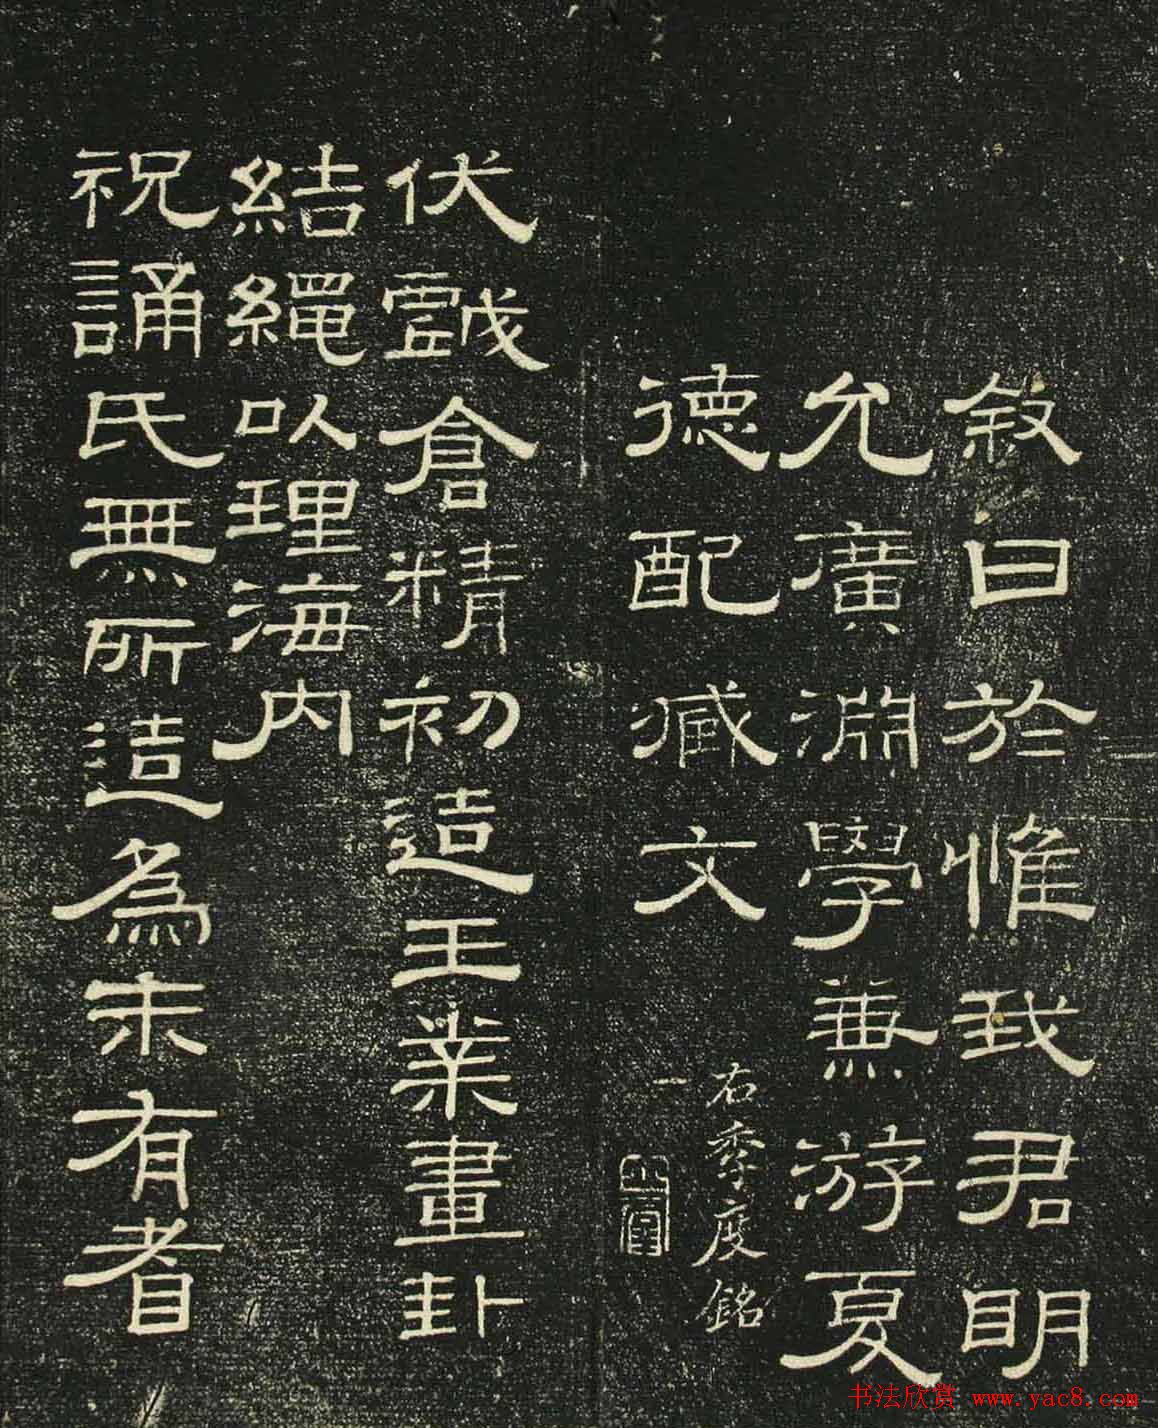 敘曰於惟我君明
允廣淵學兼游夏
德配臧文
右季度銘
一
伏戲倉精初造王業畫卦
結繩以理海內
祝誦氏無所造為未有耆
书法欣赏 www.yac8.com